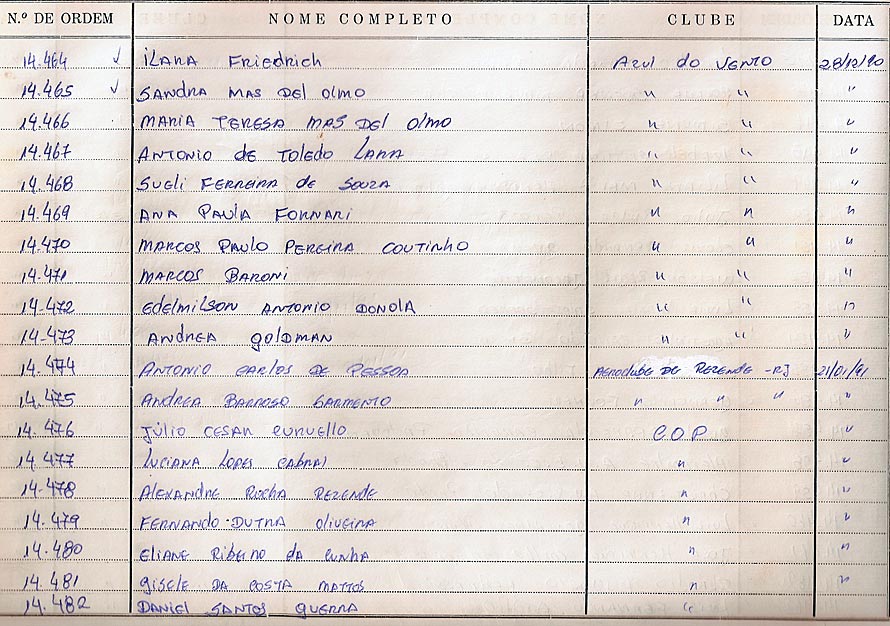 N.º DE ORDEM NOME COMPLETO CLUBE DATA
14.464 ✓ ilara Friedrich Azul do vento 28/12/90
14.465 ✓ SANDRA MAS Del Olmo " " "
14.466 MARIA TERESA MAS Del Olmo " " "
14.467 ANTONIO de Toledo LARA " " "
14.468 Sueli FERREIRA de Souza " " "
14.469 ANA PAULA FORNARI " " "
14.470 MARCOS PAULO PEREIRA COUTINHO " " "
14.471 MARCOS BARONI " " "
14.472 Edelmilson ANTONIO DONOLA " " "
14.473 ANDREA goldMAN " " "
14.474 ANTONIO CARLOS DE PESSOA Aeroclube DE REZENDE -RJ 21/01/91
14.475 ANDREA BARROSO SARMENTO " " " "
14.476 Júlio CESAR C.O.P "
14.477 LUCIANA LOPES CABRAL " "
14.478 AlexANDRE ROCHA REZENDE " "
14.479 FERNANDO DUTRA Oliveira " "
14.480 Eliane Ribeiro da Cunha " "
14.481 gisele DA COSTA MATTOS " "
14.482 DANIEL SANTOS guerra "